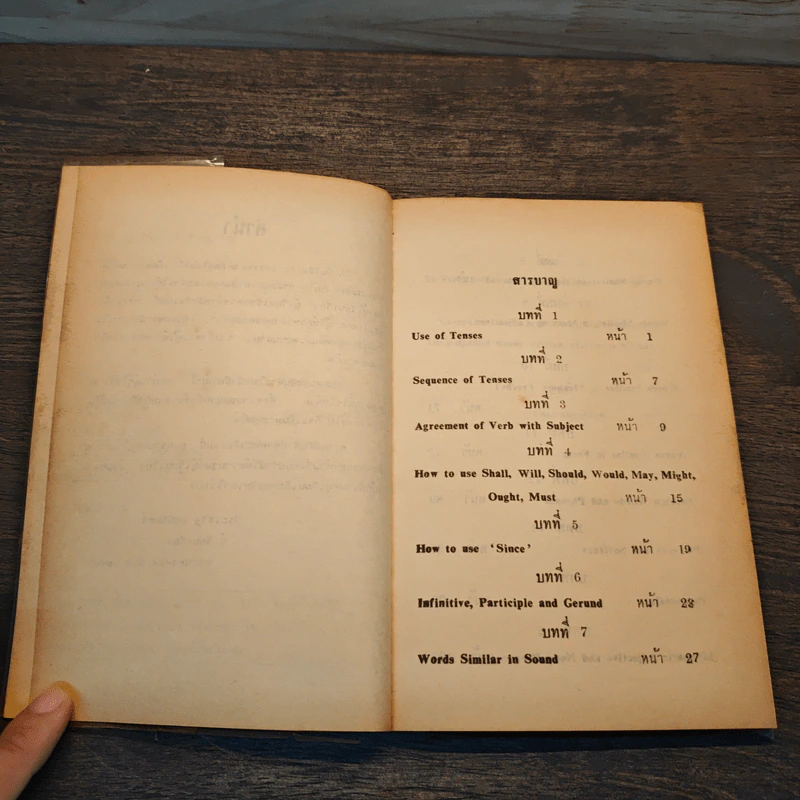 สารบาญ
บทที่ 1
Use of Tenses หน้า 1
บทที่ 2
Sequence of Tenses หน้า 7
บทที่ 3
Agreement of Verb with Subject หน้า 9
บทที่ 4
How to use Shall, Will, Should, Would, May, Might,
Ought, Must หน้า 15
บทที่ 5
How to use ‘Since’ หน้า 19
บทที่ 6
Infinitive, Participle and Gerund หน้า 23
บทที่ 7
Words Similar in Sound หน้า 27